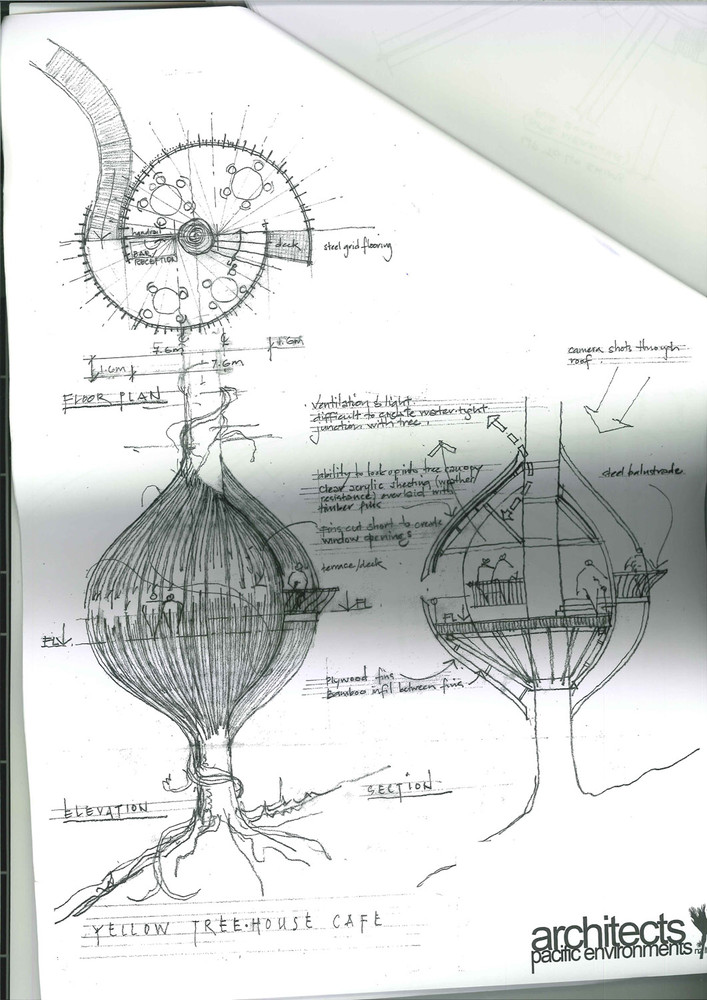 handrail
BAR
RECEPTION
deck
steel grid flooring
7.6m
1.6m
1.6m
7.6m
FLOOR PLAN
camera shots through
roof.
ventilation & light
difficult to create water-tight
junction with tree.
ability to look up into tree canopy
clear acrylic sheeting (weather
resistance) overlaid with
timber fins
fins cut short to create
window openings
steel balustrade
terrace/deck
FL
FL
FL
plywood fins
Bamboo infil between fins
ELEVATION
SECTION
YELLOW TREE·HOUSE CAFÉ
architects
pacific environments